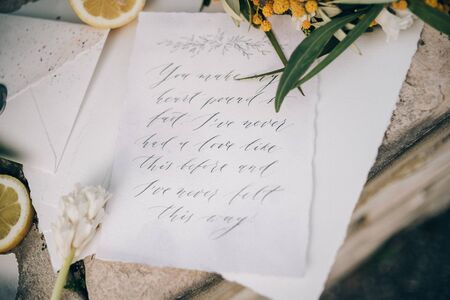 You make my
heart pound so
fast I've never
had a love like
this before and
I've never felt
this way